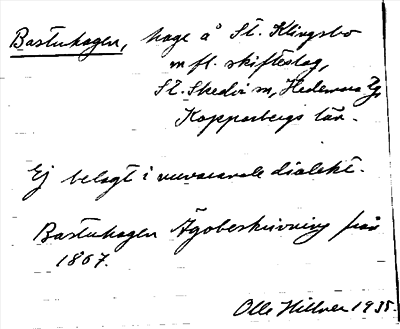 Bastuhagen, hage å St. Klingsbo
m fl. skifteslag,
St. Skedvi sn, Hedemora tg
Kopparbergs län.
Ej belagt i nuvarande dialekt.
Bastuhagen Ägobeskrivning från
1867.
Olle Hillver 1935.